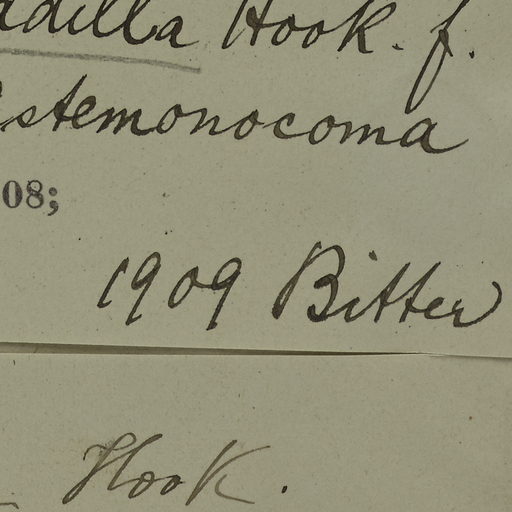 adilla Hook. f.
stemonocoma
08;
1909 Bitter
Hook.